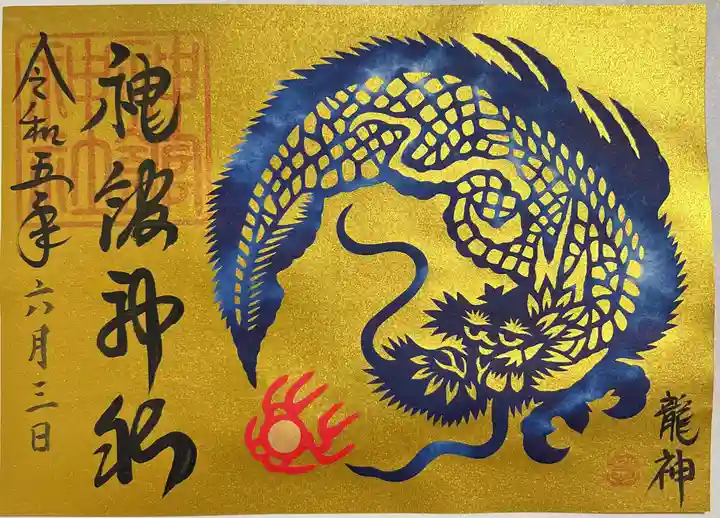 龍神
神館神社
令和五年六月三日